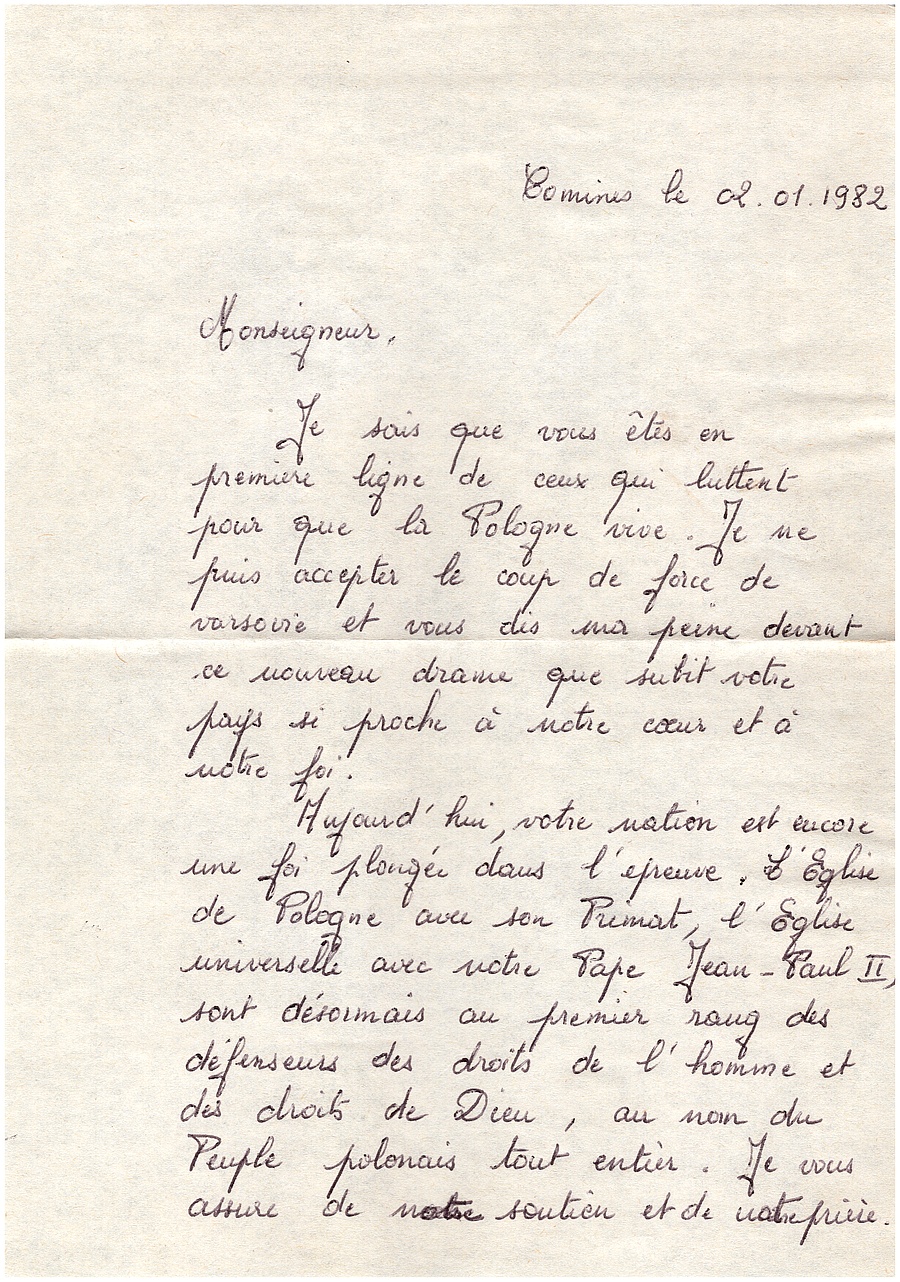 Comines le 02.01.1982
Monseigneur,
Je sais que vous êtes en
première ligne de ceux qui luttent
pour que la Pologne vive. Je ne
puis accepter le coup de force de
varsovie et vous dis ma peine devant
ce nouveau drame que subit votre
pays si proche à notre cœur et à
notre foi.
Aujourd'hui, votre nation est encore
une foi plongée dans l'épreuve. L'Eglise
de Pologne avec son Primat, l'Eglise
universelle avec notre Pape Jean-Paul II,
sont désormais au premier rang des
défenseurs des droits de l'homme et
des droits de Dieu, au nom du
Peuple polonais tout entier. Je vous
assure de notre soutien et de notre prière.